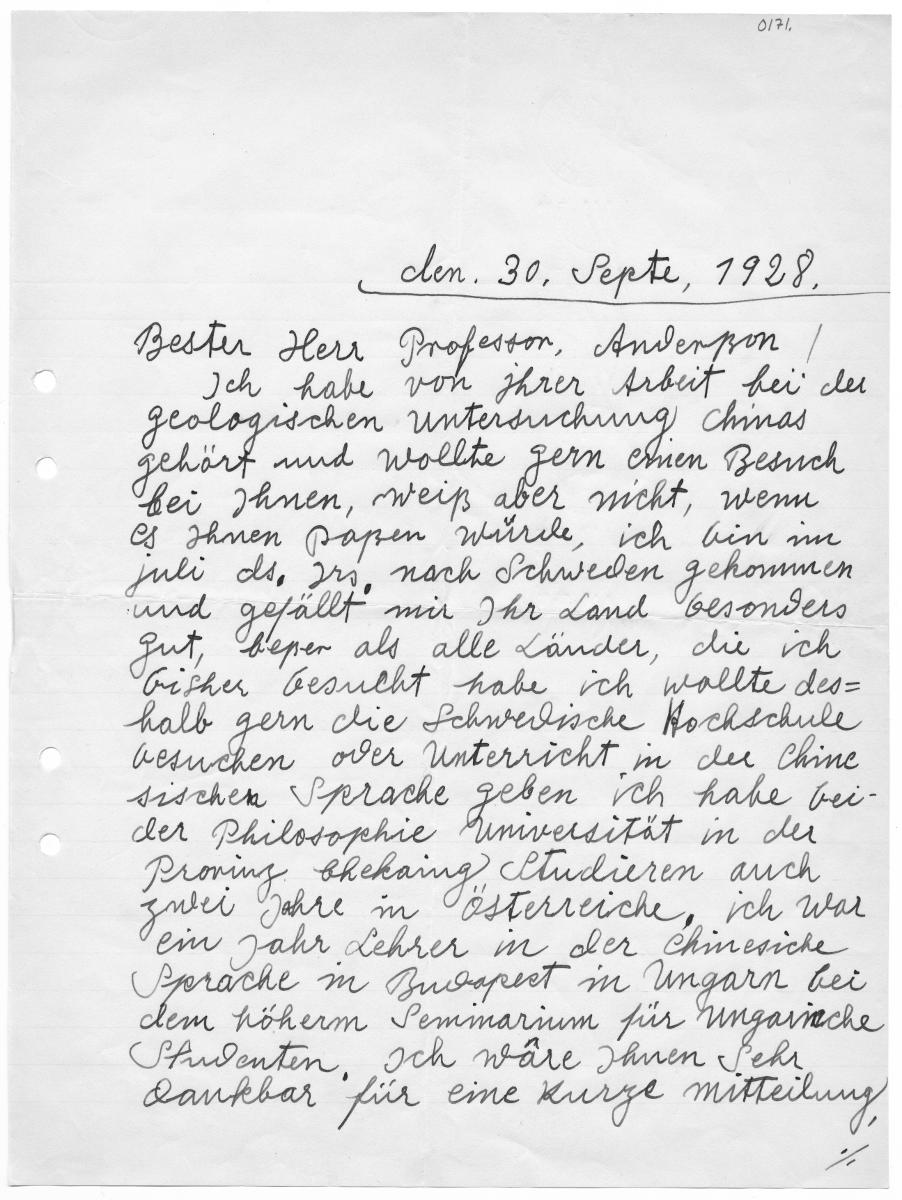 0171.
den. 30. Septe, 1928.
Bester Herr Professor, Anderßon!
Ich habe von ihrer Arbeit bei der
geologischen Untersuchung Chinas
gehört und wollte gern einen Besuch
bei Ihnen, weiß aber nicht, wenn
es Ihnen paßen würde, ich bin im
juli ds. Jrs. nach Schweden gekommen
und gefällt mir Ihr Land besonders
gut, beßer als alle Länder, die ich
bisher besucht habe ich wollte des=
halb gern die Schwedische Hochschule
besuchen oder Unterricht in der Chine
sischen Sprache geben ich habe bei-
der Philosophie Universität in der
Provinz Chekaing Studieren auch
zwei Jahre in Österreiche, ich war
ein Jahr Lehrer in der Chinesiche
Sprache in Budapest in Ungarn bei
dem höherm Seminarium für Ungarische
Studenten. Ich wäre Ihnen Sehr
Dankbar für eine Kurze mitteilung,
./.